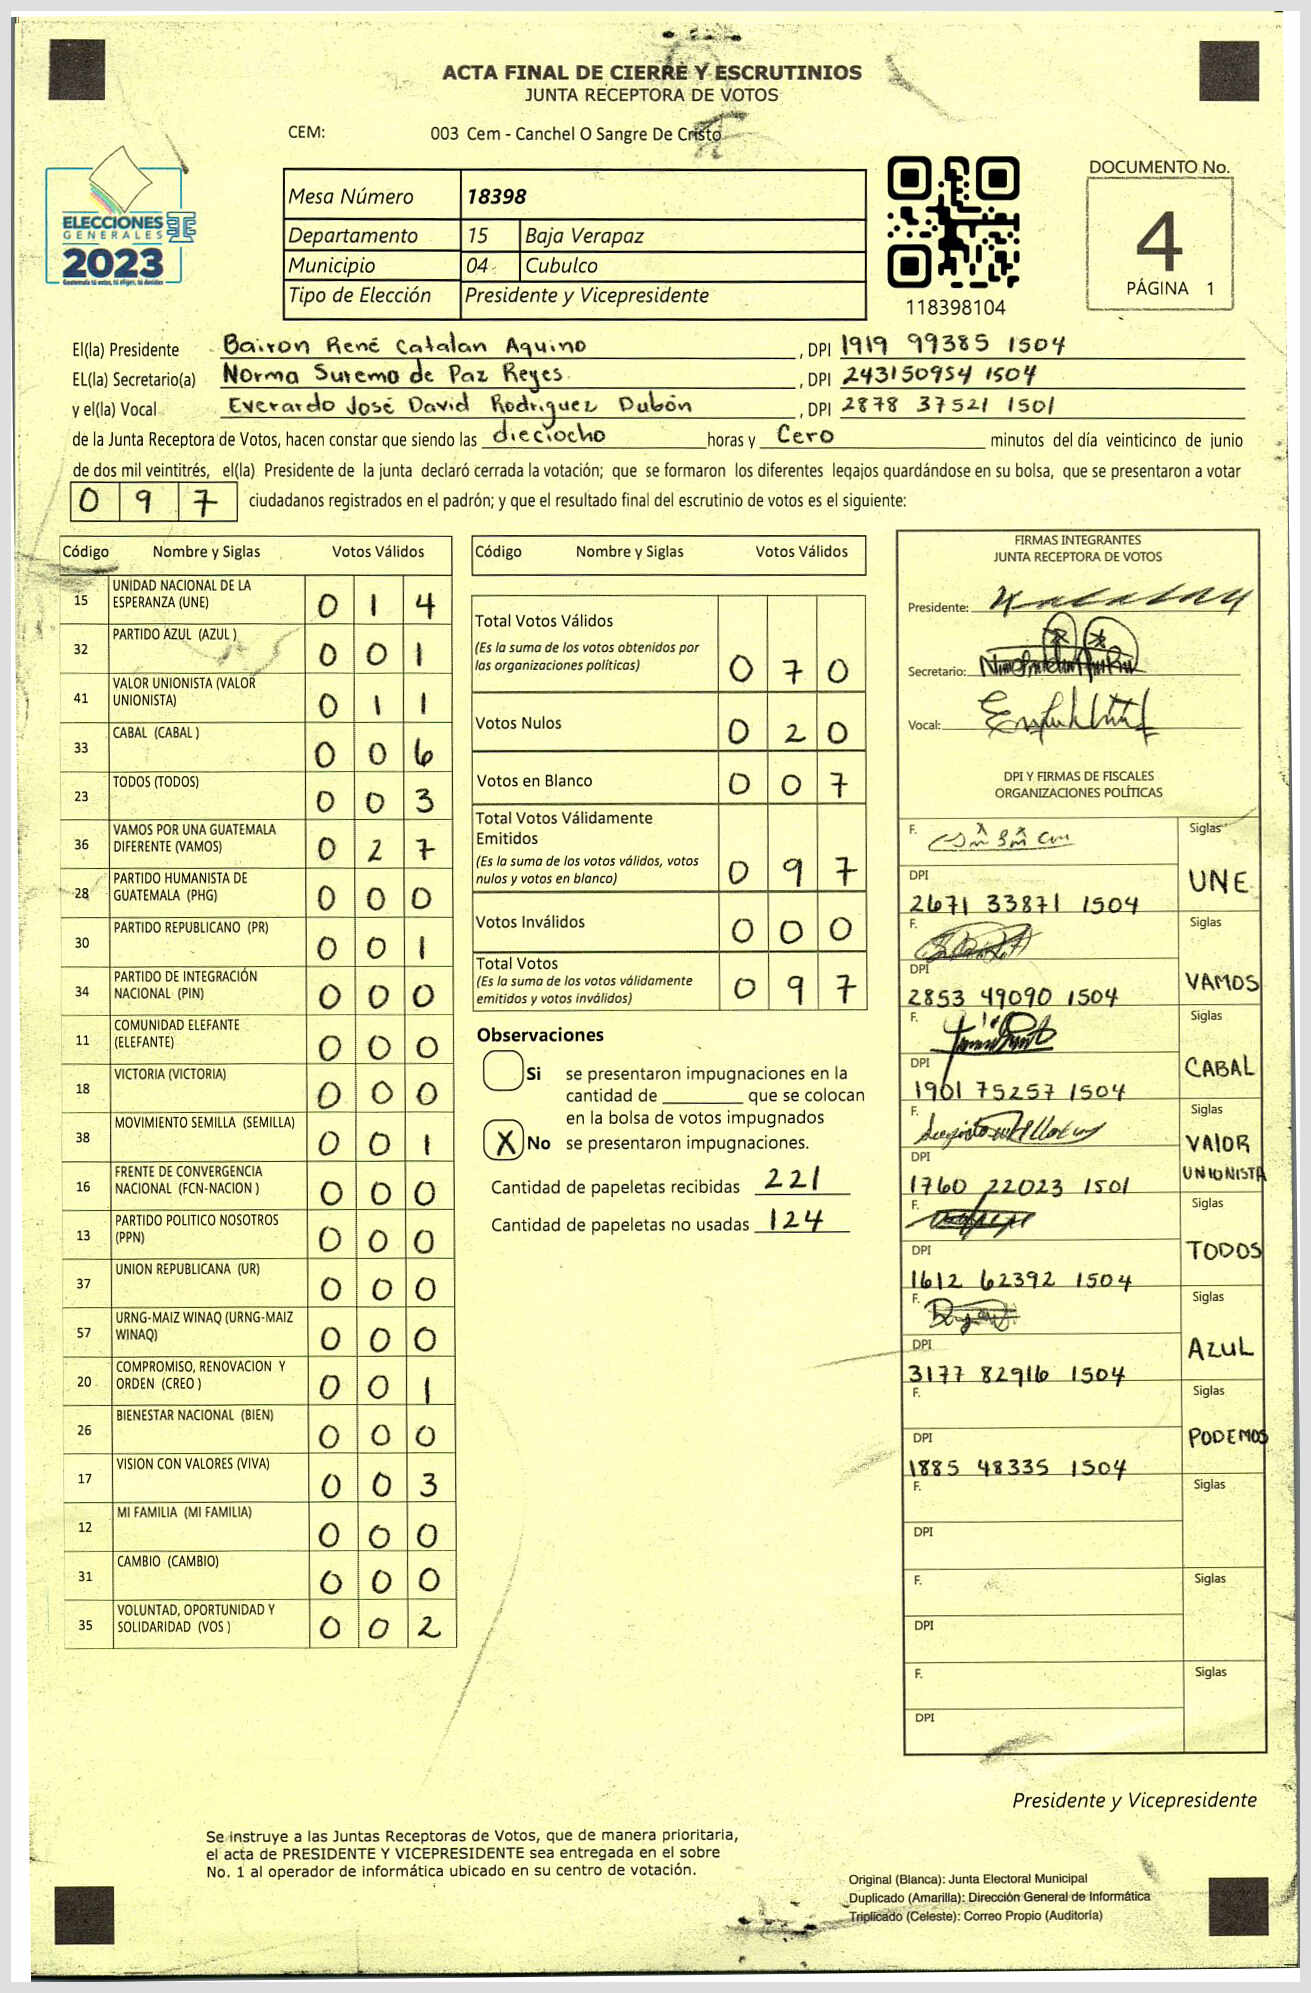 ACTA FINAL DE CIERRE Y ESCRUTINIOS
JUNTA RECEPTORA DE VOTOS
CEM: 003 Cem - Canchel O Sangre De Cristo
ELECCIONES
GENERALES
2023
Mesa Número 18398
Departamento 15 Baja Verapaz
Municipio 04 Cubulco
Tipo de Elección Presidente y Vicepresidente
118398104
DOCUMENTO No.
4
PÁGINA 1
El(la) Presidente Bairon René Catalan Aquino, DPI 1919 99385 1504
EL(la) Secretario(a) Norma Surema de Paz Reyes, DPI 243150954 1504
y el(la) Vocal Everardo José David Rodriguez Dubón, DPI 2878 37521 1501
de la Junta Receptora de Votos, hacen constar que siendo las dieciocho horas y Cero minutos del día veinticinco de junio
de dos mil veintitrés, el(la) Presidente de la junta declaró cerrada la votación; que se formaron los diferentes legajos guardándose en su bolsa, que se presentaron a votar
0 9 7 ciudadanos registrados en el padrón; y que el resultado final del escrutinio de votos es el siguiente:
Código Nombre y Siglas Votos Válidos
15 UNIDAD NACIONAL DE LA ESPERANZA (UNE) 0 1 4
32 PARTIDO AZUL (AZUL ) 0 0 1
41 VALOR UNIONISTA (VALOR UNIONISTA) 0 1 1
33 CABAL (CABAL ) 0 0 6
23 TODOS (TODOS) 0 0 3
36 VAMOS POR UNA GUATEMALA DIFERENTE (VAMOS) 0 2 7
28 PARTIDO HUMANISTA DE GUATEMALA (PHG) 0 0 0
30 PARTIDO REPUBLICANO (PR) 0 0 1
34 PARTIDO DE INTEGRACIÓN NACIONAL (PIN) 0 0 0
11 COMUNIDAD ELEFANTE (ELEFANTE) 0 0 0
18 VICTORIA (VICTORIA) 0 0 0
38 MOVIMIENTO SEMILLA (SEMILLA) 0 0 1
16 FRENTE DE CONVERGENCIA NACIONAL (FCN-NACION ) 0 0 0
13 PARTIDO POLITICO NOSOTROS (PPN) 0 0 0
37 UNION REPUBLICANA (UR) 0 0 0
57 URNG-MAIZ WINAQ (URNG-MAIZ WINAQ) 0 0 0
20 COMPROMISO, RENOVACION Y ORDEN (CREO ) 0 0 1
26 BIENESTAR NACIONAL (BIEN) 0 0 0
17 VISION CON VALORES (VIVA) 0 0 3
12 MI FAMILIA (MI FAMILIA) 0 0 0
31 CAMBIO (CAMBIO) 0 0 0
35 VOLUNTAD, OPORTUNIDAD Y SOLIDARIDAD (VOS ) 0 0 2
Código Nombre y Siglas Votos Válidos
Total Votos Válidos
(Es la suma de los votos obtenidos por
las organizaciones políticas) 0 7 0
Votos Nulos 0 2 0
Votos en Blanco 0 0 7
Total Votos Válidamente
Emitidos
(Es la suma de los votos válidos, votos
nulos y votos en blanco) 0 9 7
Votos Inválidos 0 0 0
Total Votos
(Es la suma de los votos válidamente
emitidos y votos inválidos) 0 9 7
Observaciones
Si se presentaron impugnaciones en la
cantidad de ________ que se colocan
en la bolsa de votos impugnados
X No se presentaron impugnaciones.
Cantidad de papeletas recibidas 221
Cantidad de papeletas no usadas 124
FIRMAS INTEGRANTES
JUNTA RECEPTORA DE VOTOS
Presidente:
Secretario:
Vocal:
DPI Y FIRMAS DE FISCALES
ORGANIZACIONES POLÍTICAS
F. Siglas
DPI UNE
2671 33871 1504
F. Siglas
DPI VAMOS
2853 49090 1504
F. Siglas
DPI CABAL
1901 75257 1504
F. Siglas
DPI VALOR UNIONISTA
1760 22023 1501
F. Siglas
DPI TODOS
1612 62392 1504
F. Siglas
DPI AZUL
3177 82916 1504
F. Siglas
DPI PODEMOS
1885 48335 1504
F. Siglas
DPI
F. Siglas
DPI
F. Siglas
DPI
Presidente y Vicepresidente
Se instruye a las Juntas Receptoras de Votos, que de manera prioritaria,
el acta de PRESIDENTE Y VICEPRESIDENTE sea entregada en el sobre
No. 1 al operador de informática ubicado en su centro de votación.
Original (Blanca): Junta Electoral Municipal
Duplicado (Amarilla): Dirección General de Informática
Triplicado (Celeste): Correo Propio (Auditoría)